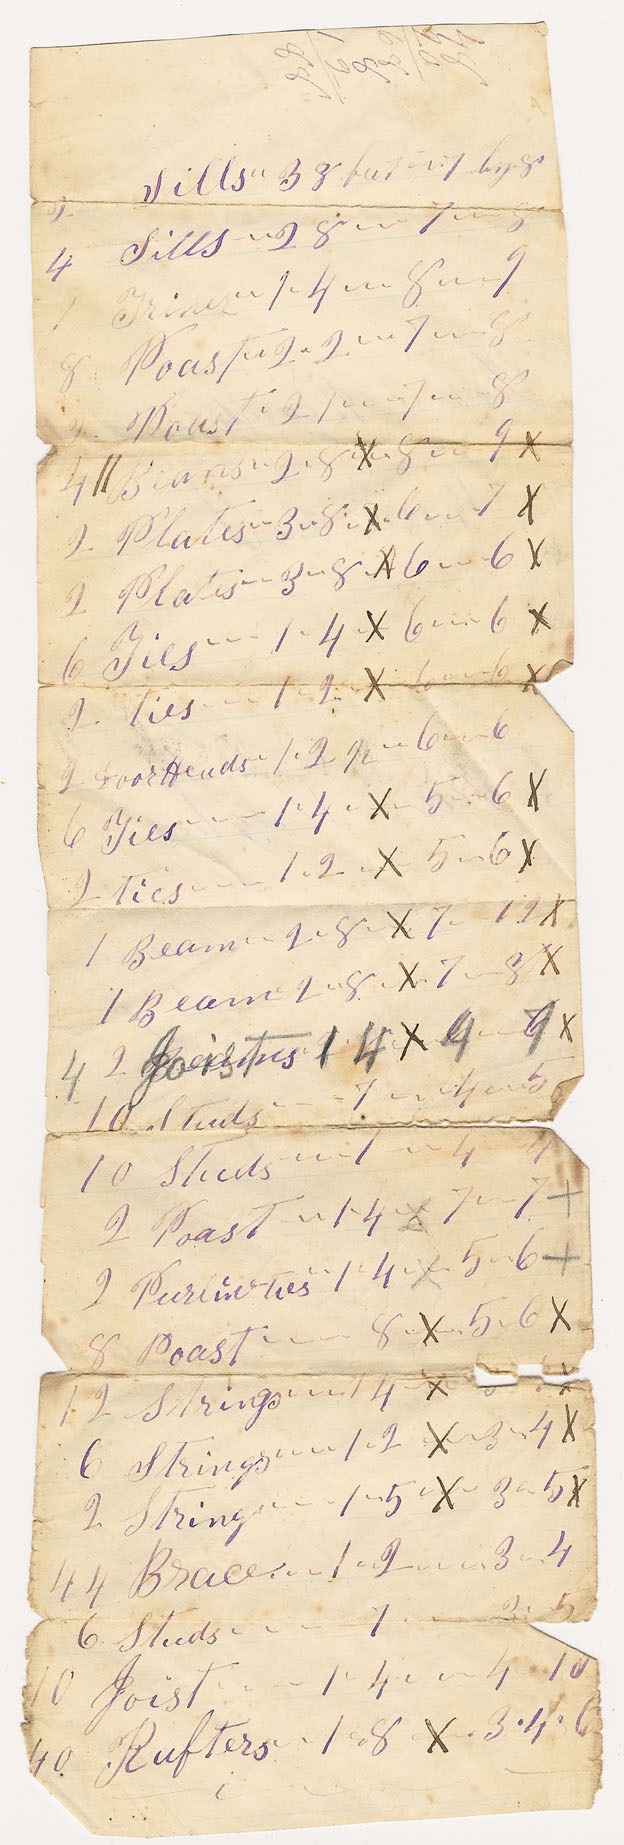 2 Sills " 38 feet " 7 by 8
4 Sills " 28 " 7 " 8
1 " 14 " 8 " 9
8 Poast " 22 " 7 " 8
2 Poast " 21 " 7 " 8
4 11 Beams " 28 X 8 " 9 X
2 Plates " 38 X 6 " 7 X
2 Plates " 38 X 6 " 6 X
6 Ties " 14 X 6 " 6 X
2 ties " 12 X 6 " 6 X
2 DoorHeads " 12 " 6 " 6
6 Ties " 14 X 5 " 6 X
2 ties " 12 X 5 " 6 X
1 Beam " 28 X 7 " 12 X
1 Beam " 28 X 7 " 8 X
4 Joist 14 X 9 X
10 Studs " 7 " 4 " 5
10 Studs " 7 " 4 " 4
2 Poast " 14 X 7 " 7 +
2 Purlin ties " 14 X 5 " 6 +
8 Poast " 8 X 5 " 6 X
12 Strings " 14 X X
6 Strings " 12 X 3 " 4 X
2 String " 15 X 3 " 5 X
44 Brace " 12 " 3 " 4
6 Studs " 7 " 3 " 5
10 Joist " 14 " 4 " 10
40 Rufters " 18 X 3 " 4 " 6